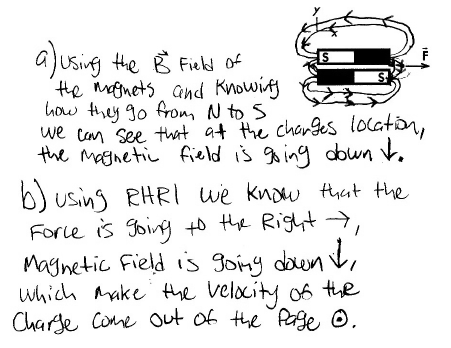 y
x
S
S
F
a) Using the B Field of
the magnets and Knowing
how they go from N to S
we can see that at the charges location,
the magnetic field is going down ↓.
b) Using RHR1 we know that the
Force is going to the Right →,
Magnetic Field is going down ↓,
which make the velocity of the
Charge come out of the Page ⊙.